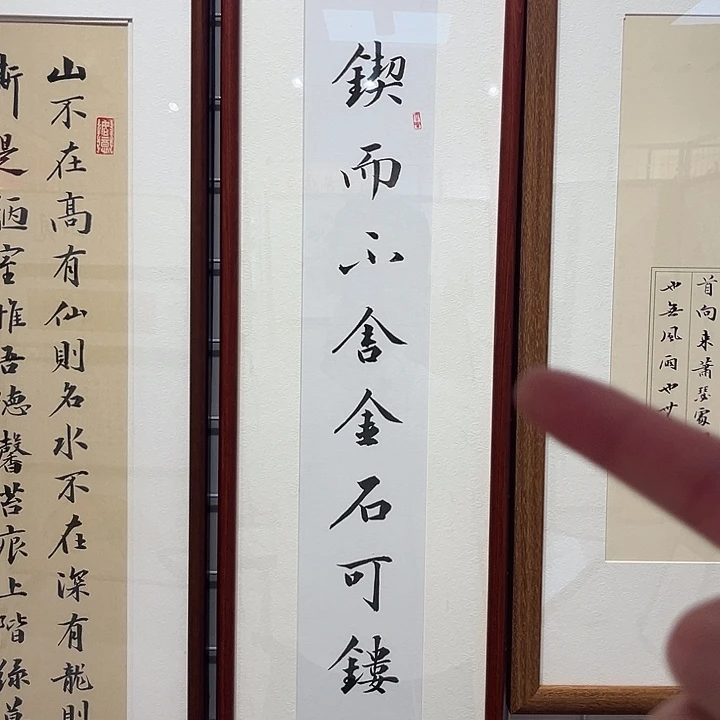 首向来蕭瑟處
也無風雨也
鍥而不舍金石可鏤
山不在髙有仙則名水不在深有龍則
斯是陋室惟吾德馨苔痕上階緑